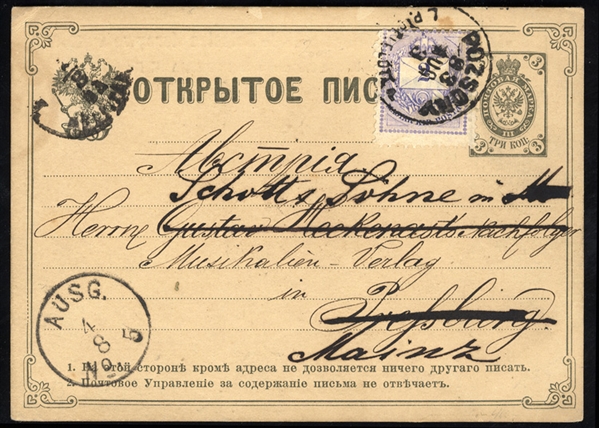 ОТКРЫТОЕ ПИС
POZSONY
83
3
3
ТРИ КОП.
3
Австрія
Schotts Söhne in
Herrn Gustav Heckenast's Nachfolger
Musikalien-Verlag
in
Preßburg
Mainz
AUSG.
4
8
No. 5
1. На этой сторонѣ кромѣ адреса не дозволяется ничего другаго писать.
2. Почтовое Управленіе за содержаніе письма не отвѣчаетъ.